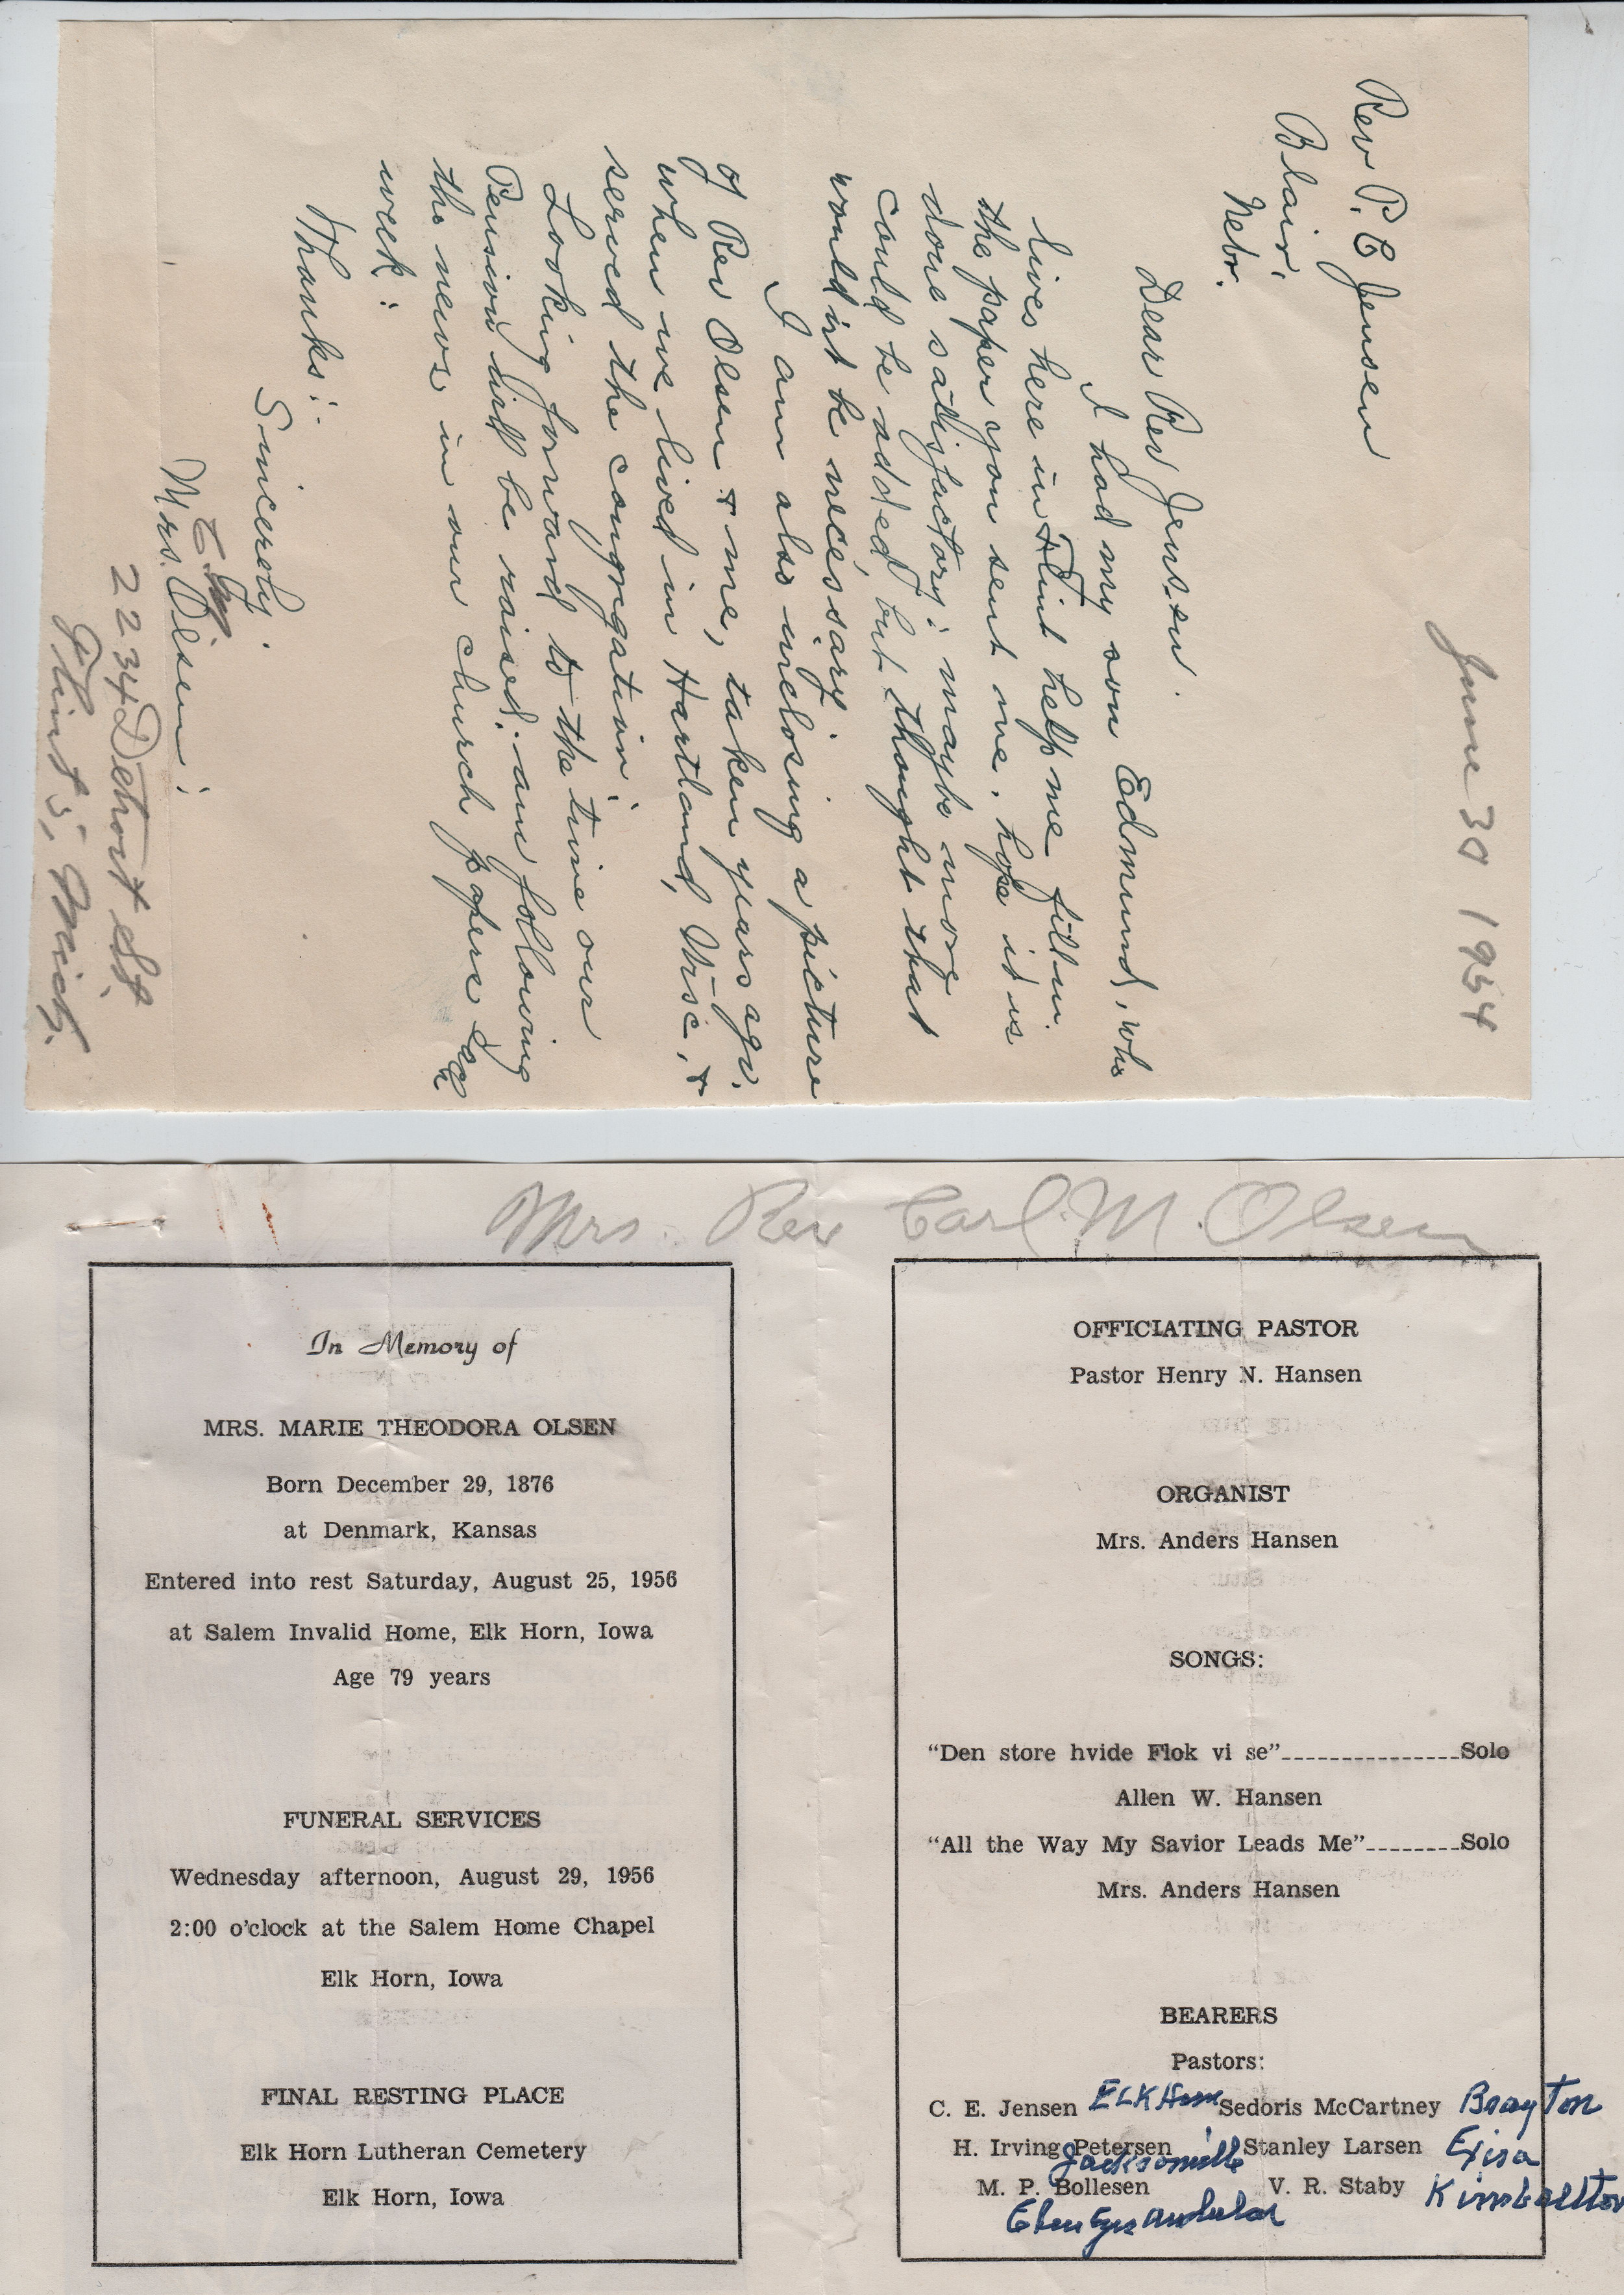 June 30 1954
Rev P. C Jensen
Blair,
Nebr.
Dear Rev Jensen.
I had my son Edmund, who
lives here in Flint help me fill in
the paper you sent me. hope it is
done sattisfactory: maybe more
could be added, but thought that
would'nt be necessary.
I am also inclosing a picture
of Rev Olsen & me, taken years ago.
when we lived in Hartland, Wisc, &
served the congregation.
Looking forward to the time our
Pension will be raised: am following
the news in our church papers each
week:
Thanks:
Sincerely.
Mrs. C. M. Olsen:
2234 Detroit St,
Flint 5, Mich.
Mrs. Rev Carl. M. Olsen
In Memory of
MRS. MARIE THEODORA OLSEN
Born December 29, 1876
at Denmark, Kansas
Entered into rest Saturday, August 25, 1956
at Salem Invalid Home, Elk Horn, Iowa
Age 79 years
FUNERAL SERVICES
Wednesday afternoon, August 29, 1956
2:00 o'clock at the Salem Home Chapel
Elk Horn, Iowa
FINAL RESTING PLACE
Elk Horn Lutheran Cemetery
Elk Horn, Iowa
OFFICIATING PASTOR
Pastor Henry N. Hansen
ORGANIST
Mrs. Anders Hansen
SONGS:
"Den store hvide Flok vi se"---------------Solo
Allen W. Hansen
"All the Way My Savior Leads Me"--------Solo
Mrs. Anders Hansen
BEARERS
Pastors:
C. E. Jensen ELK Horn Sedoris McCartney Brayton
H. Irving Petersen Jacksonville Stanley Larsen Exira
M. P. Bollesen V. R. Staby Kimballton